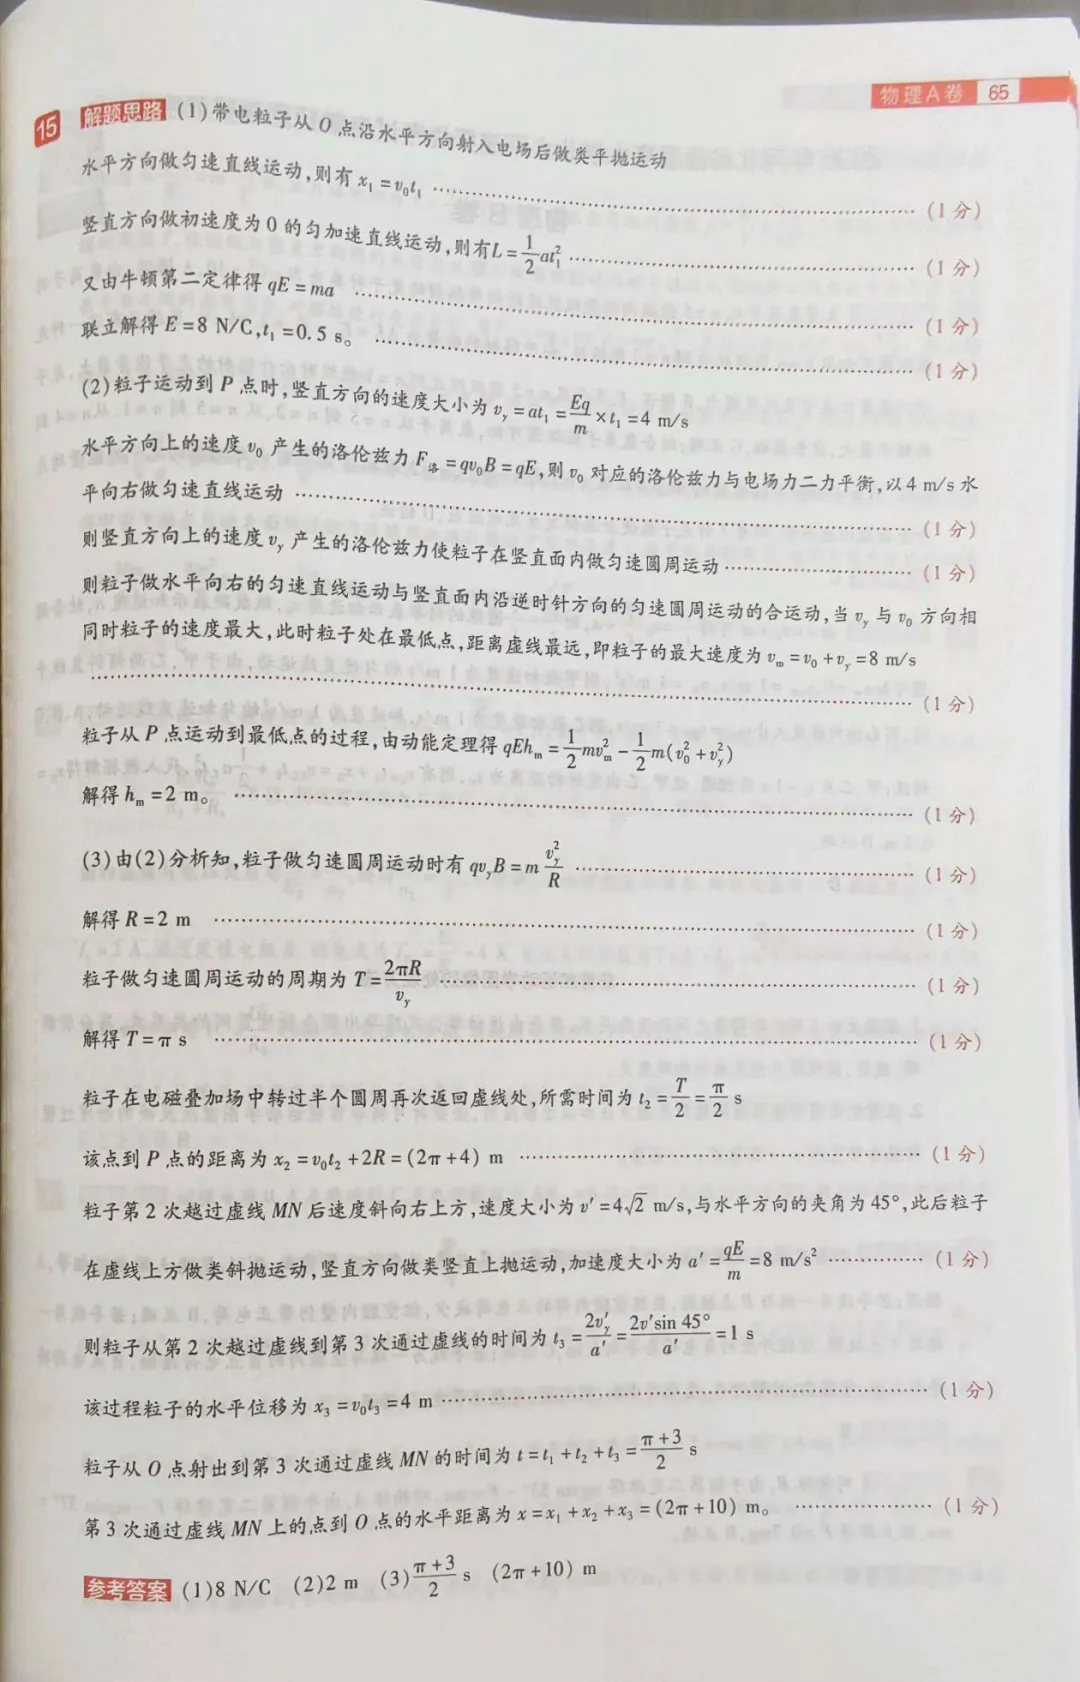 物理A卷 65
15 解题思路 (1)带电粒子从O点沿水平方向射入电场后做类平抛运动
水平方向做匀速直线运动,则有x₁=v₀t₁ (1分)
竖直方向做初速度为0的匀加速直线运动,则有L=1/2at₁² (1分)
又由牛顿第二定律得qE=ma (1分)
联立解得E=8 N/C,t₁=0.5 s。 (1分)
(2)粒子运动到P点时,竖直方向的速度大小为v_y=at₁=Eq/m×t₁=4 m/s
水平方向上的速度v₀产生的洛伦兹力F洛=qv₀B=qE,则v₀对应的洛伦兹力与电场力二力平衡,以4 m/s水
平向右做匀速直线运动 (1分)
则竖直方向上的速度v_y产生的洛伦兹力使粒子在竖直面内做匀速圆周运动 (1分)
则粒子做水平向右的匀速直线运动与竖直面内沿逆时针方向的匀速圆周运动的合运动,当v_y与v₀方向相
同时粒子的速度最大,此时粒子处在最低点,距离虚线最远,即粒子的最大速度为v_m=v₀+v_y=8 m/s
(1分)
粒子从P点运动到最低点的过程,由动能定理得qEh_m=1/2mv_m²-1/2m(v₀²+v_y²)
解得h_m=2 m。 (1分)
(3)由(2)分析知,粒子做匀速圆周运动时有qv_yB=m v_y²/R (1分)
解得R=2 m (1分)
粒子做匀速圆周运动的周期为T=2πR/v_y (1分)
解得T=π s (1分)
粒子在电磁叠加场中转过半个圆周再次返回虚线处,所需时间为t₂=T/2=π/2 s
该点到P点的距离为x₂=v₀t₂+2R=(2π+4) m (1分)
粒子第2次越过虚线MN后速度斜向右上方,速度大小为v′=4√2 m/s,与水平方向的夹角为45°,此后粒子
在虚线上方做类斜抛运动,竖直方向做类竖直上抛运动,加速度大小为a′=qE/m=8 m/s² (1分)
则粒子从第2次越过虚线到第3次通过虚线的时间为t₃=2v′_y/a′=2v′sin 45°/a′=1 s
该过程粒子的水平位移为x₃=v₀t₃=4 m (1分)
粒子从O点射出到第3次通过虚线MN的时间为t=t₁+t₂+t₃=(π+3)/2 s
第3次通过虚线MN上的点到O点的水平距离为x=x₁+x₂+x₃=(2π+10) m。 (1分)
参考答案 (1)8 N/C (2)2 m (3)(π+3)/2 s (2π+10) m